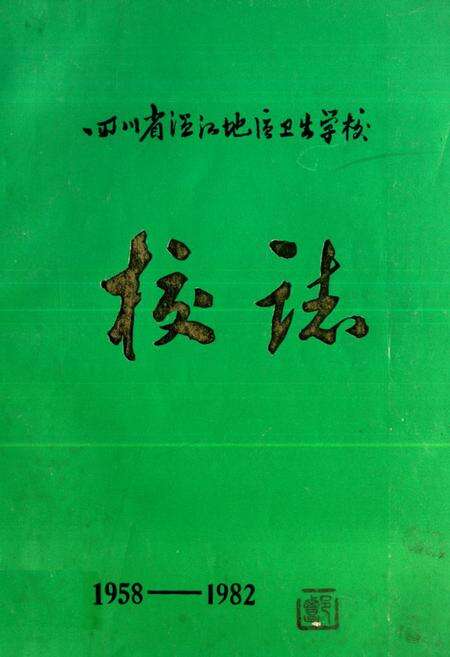 四川省温江地区卫生学校
校誌
1958——1982